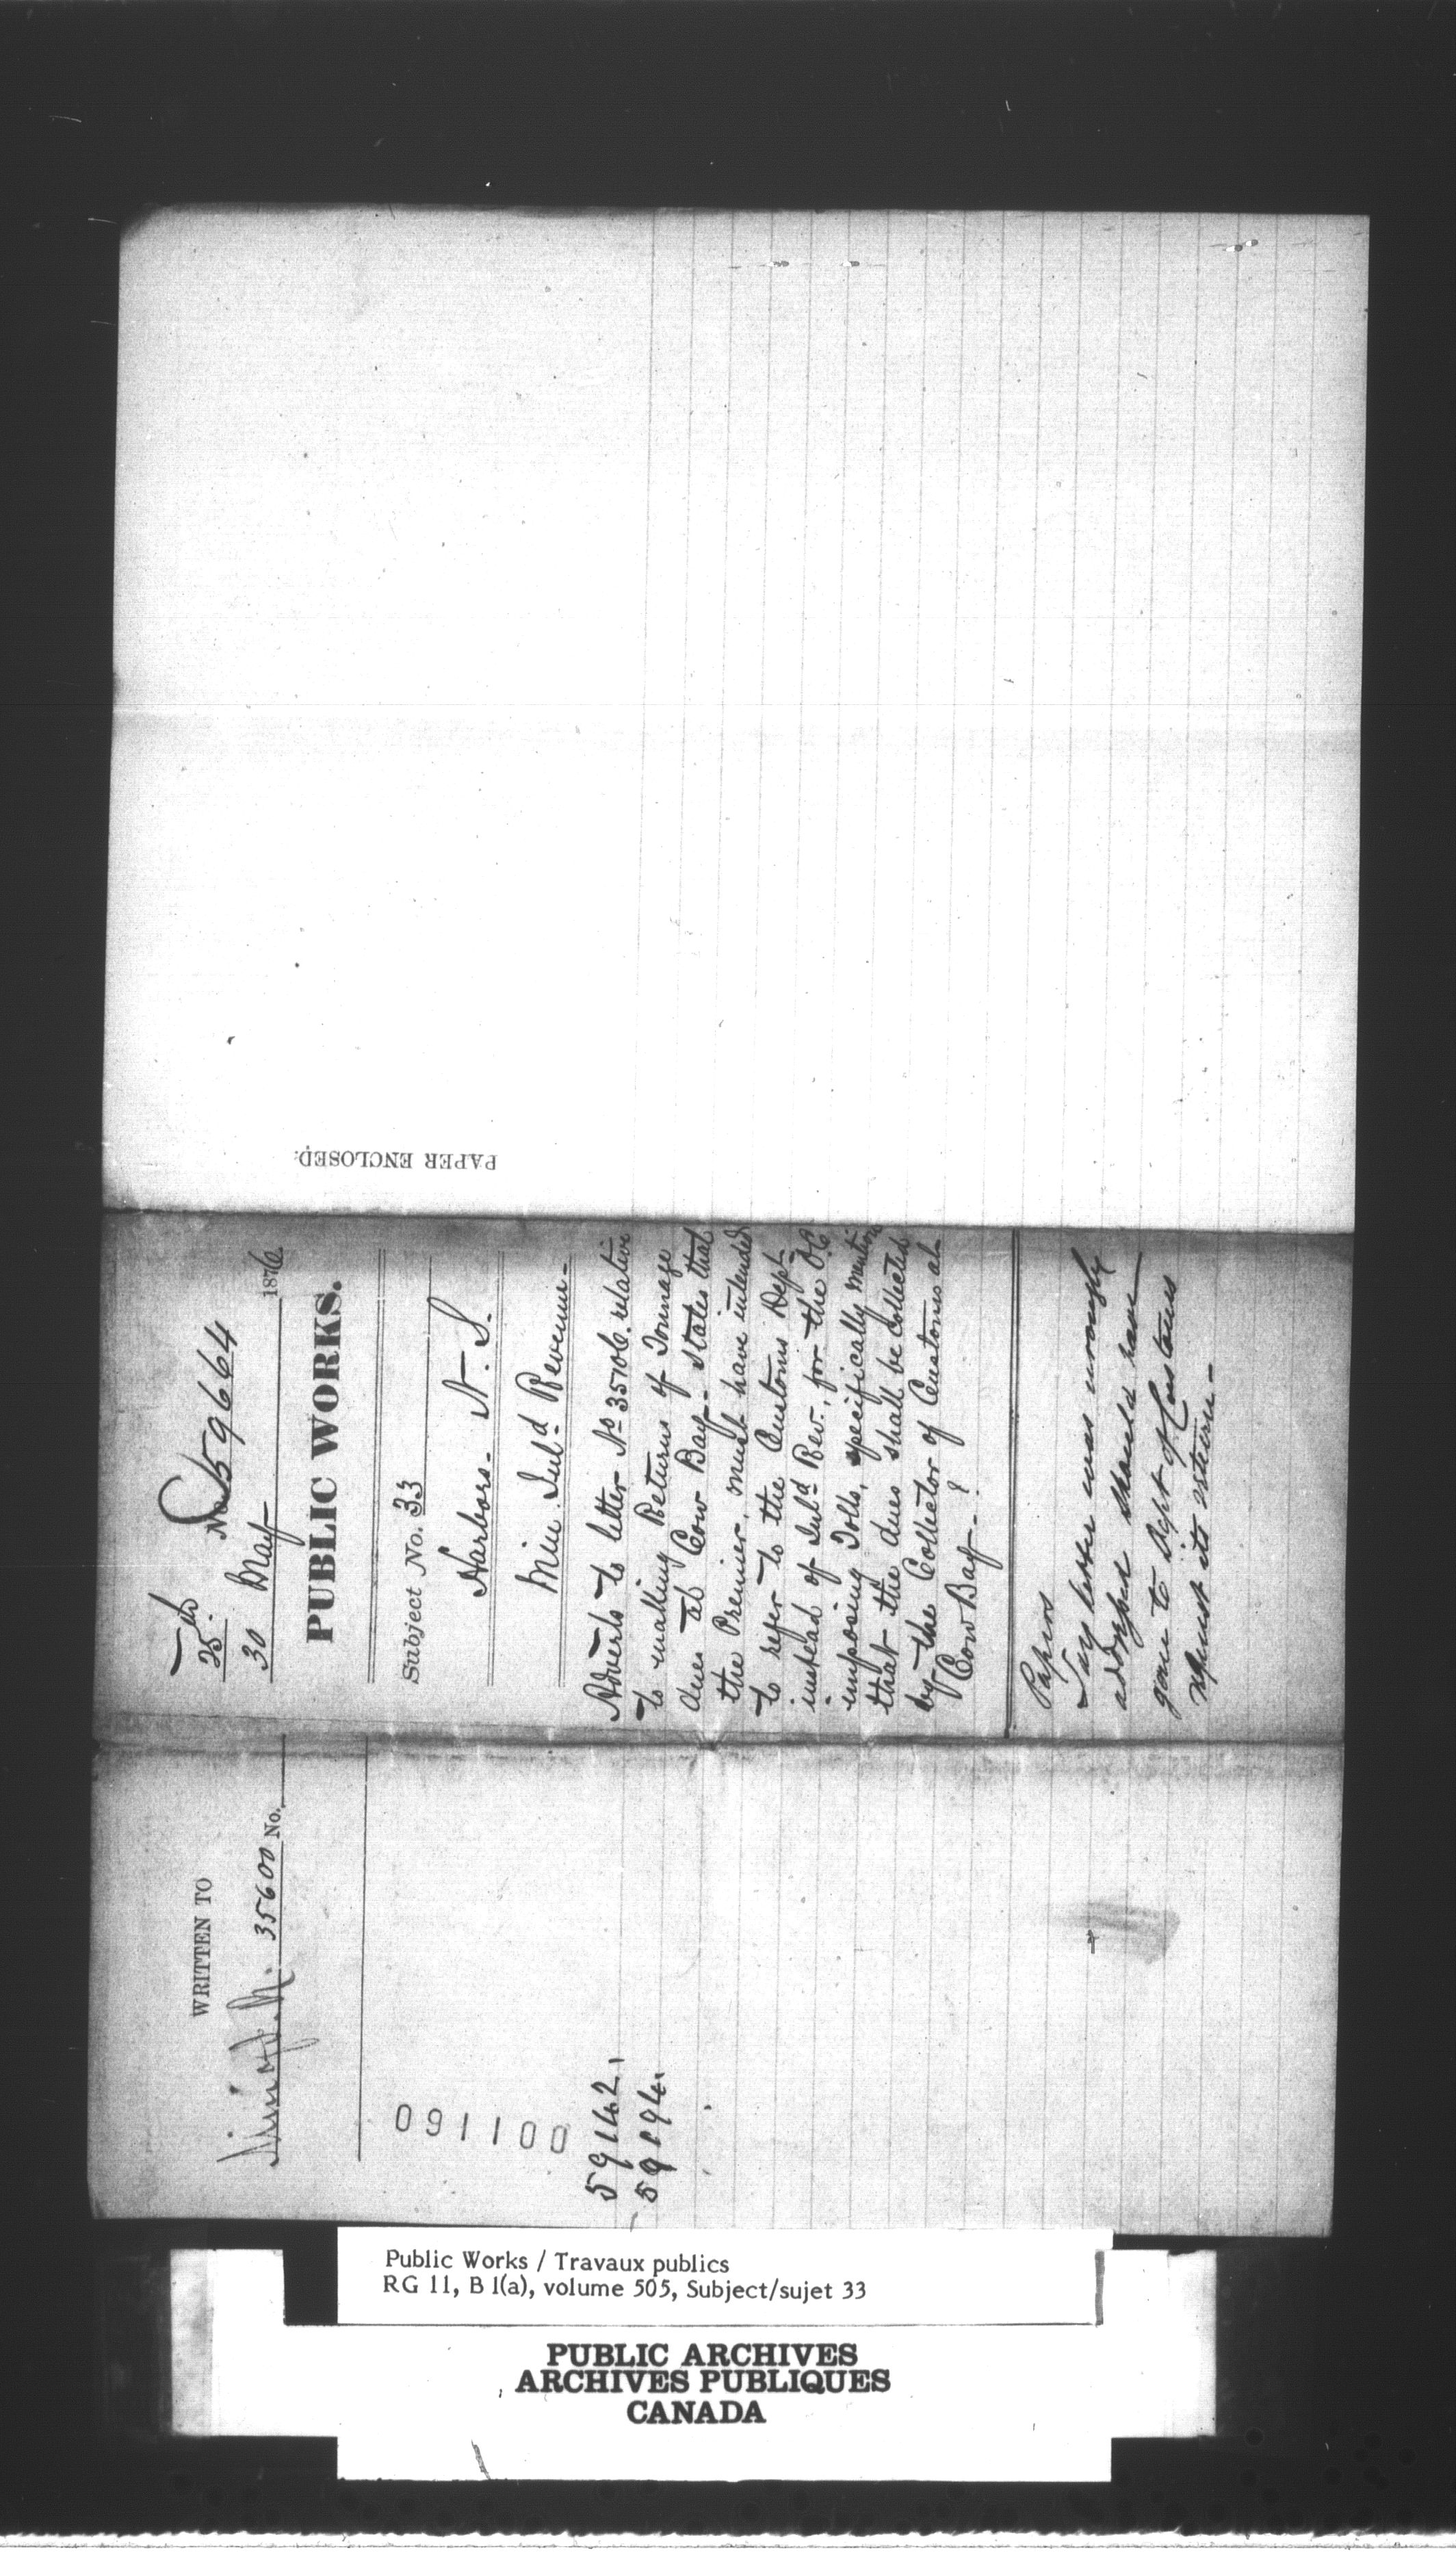 PAPER ENCLOSED.
25th
No. 59664
30 May 1876
PUBLIC WORKS.
Subject No. 33
Harbors. N. S.
Min. Inld Revenue.
Adverts to letter No 35106. relative
to making Returns of Tonnage
dues at Cow Bay - States that
the Premier, must have intended
to refer to the Customs Dept.
instead of Inld Rev., for the O.C.
imposing Tolls, specifically mention
that the dues shall be collected
by the Collector of Customs at
Cow Bay - ?
Papers
Say letter was wrongly
addressed should have
gone to Dept of Customs
request its return -
WRITTEN TO
35600 No.
091100
59142
59194
Public Works / Travaux publics
RG 11, B 1(a), volume 505, Subject/sujet 33
PUBLIC ARCHIVES
ARCHIVES PUBLIQUES
CANADA